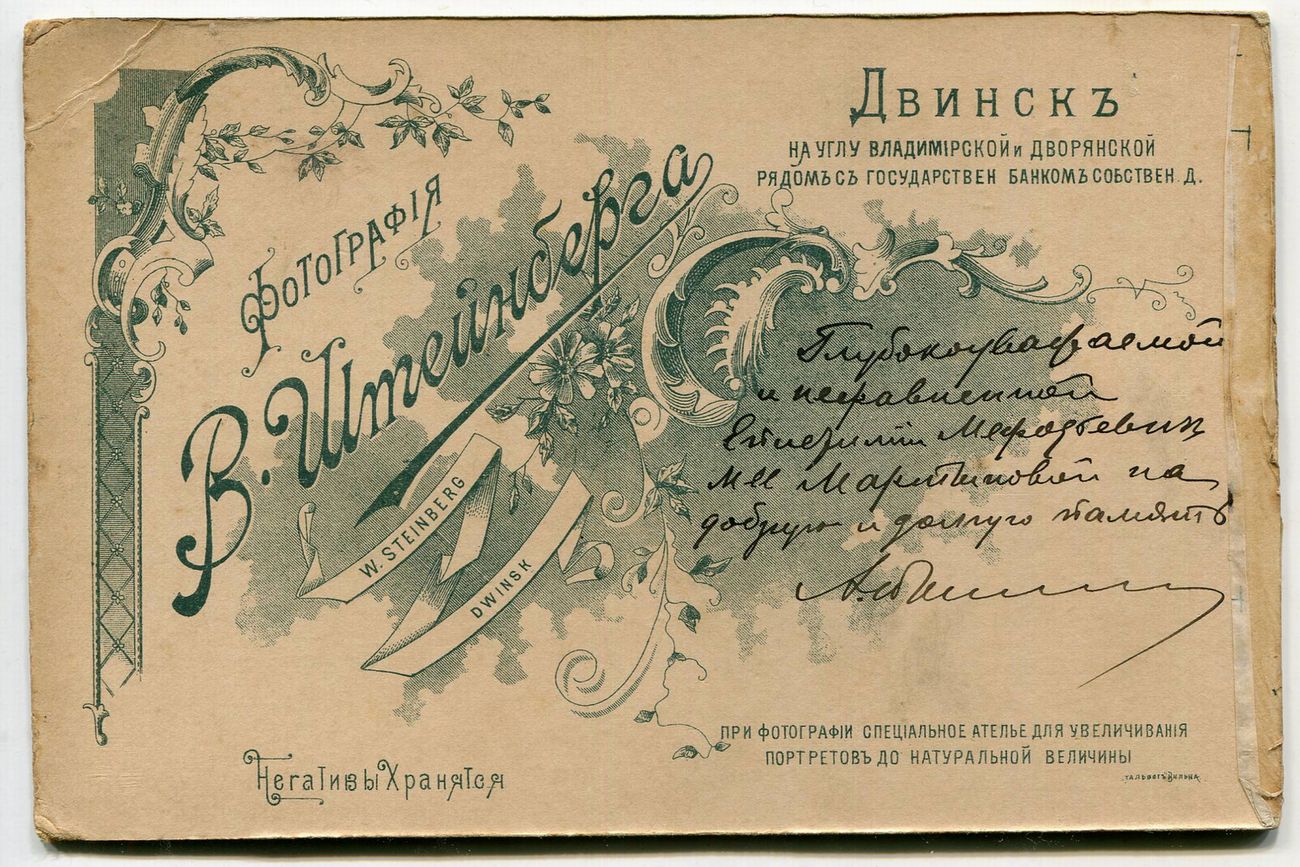 Двинскъ
НА УГЛУ ВЛАДИМІРСКОЙ и ДВОРЯНСКОЙ
РЯДОМЪ СЪ ГОСУДАРСТВЕН БАНКОМЪ СОБСТВЕН. Д.
ФОТОГРАФІЯ
В. Штейнберга
W. STEINBERG
DWINSK
Глубокоуважаемой
и несравненной
Мартыновой на
добрую и долгую память
ПРИ ФОТОГРАФІИ СПЕЦІАЛЬНОЕ АТЕЛЬЕ ДЛЯ УВЕЛИЧИВАНІЯ
ПОРТРЕТОВЪ ДО НАТУРАЛЬНОЙ ВЕЛИЧИНЫ
Негативы Хранятся